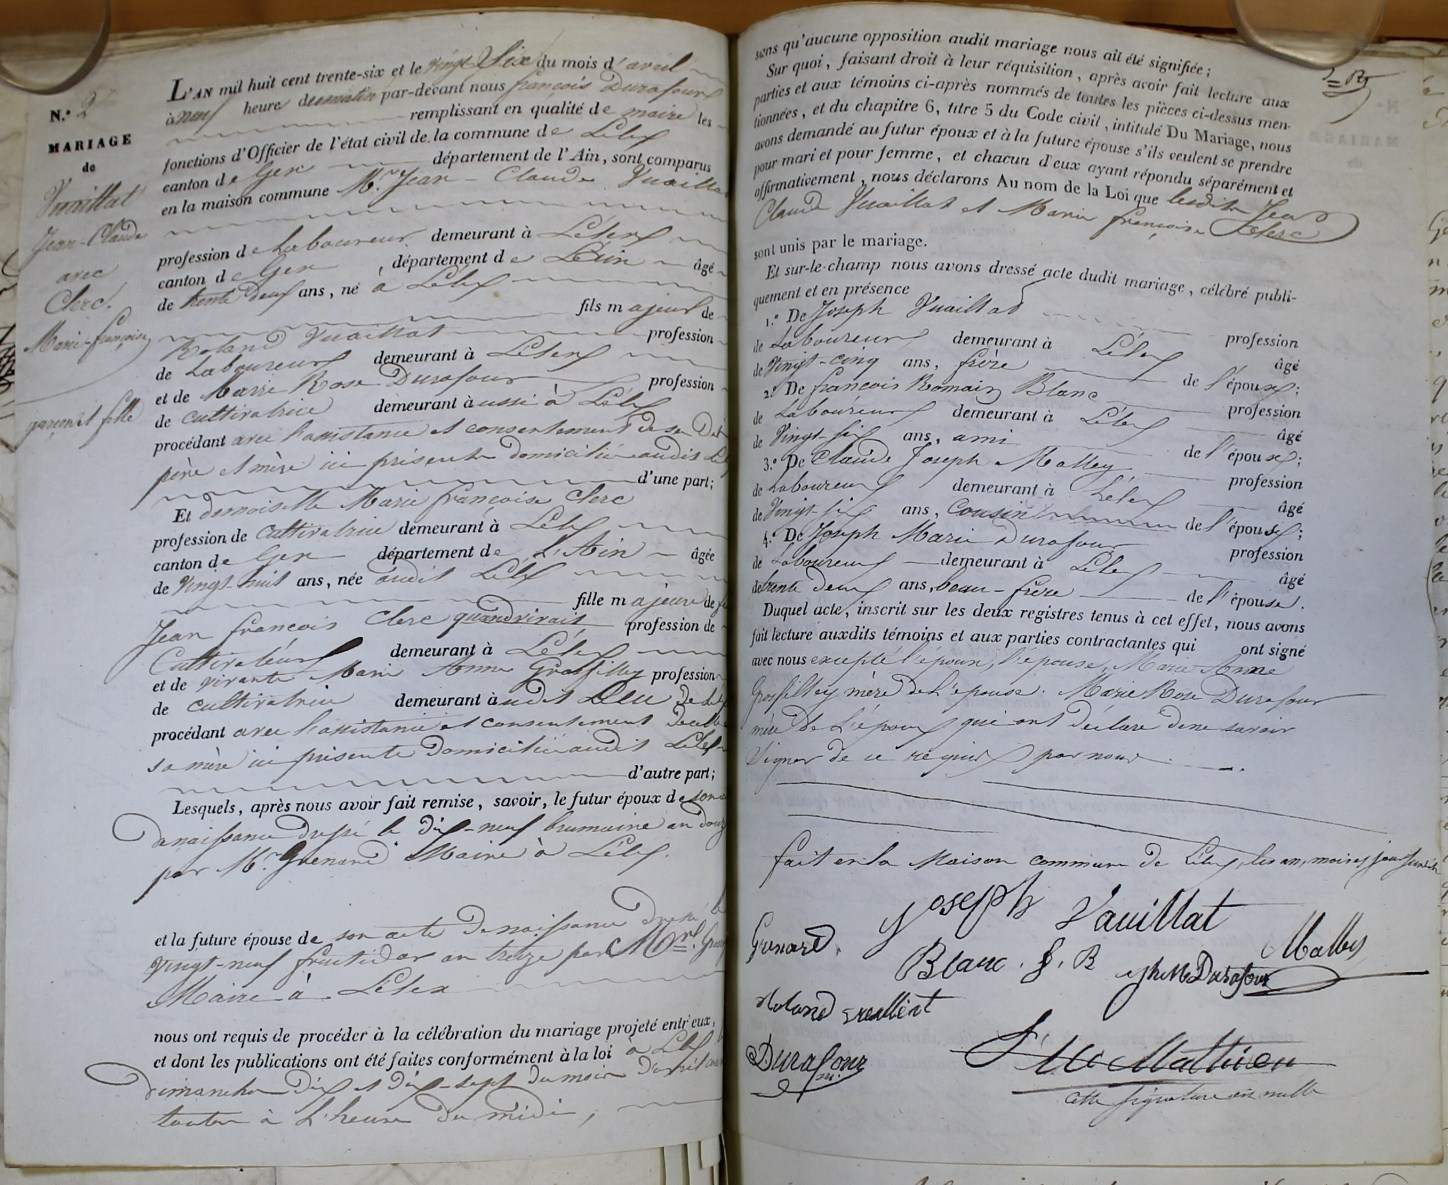 N.° 2
MARIAGE
de
Vuaillat
Jean-Claude
avec
Clerc
Marie-françoise
garçon et fille
L'AN mil huit cent trente-six et le vingt Six du mois d'avril
à neuf heures du matin par-devant nous françois Durafour
remplissant en qualité de maire les
fonctions d'Officier de l'état civil de la commune de Lélex
canton de Gex département de l'Ain, sont comparus
en la maison commune Mr. Jean-Claude Vuaillat
profession de Laboureur demeurant à Lélex
canton de Gex, département de L'Ain âgé
de trente deux ans, né à Lélex
fils majeur de
Roland Vuaillat profession
de Laboureur demeurant à Lélex
et de Marie Rose Durafour profession
de cultivatrice demeurant aussi à Lélex
procédant avec l'assistance et consentement de ses Dits
père et mère ici présents domiciliés audit
d'une part;
Et demoiselle Marie françoise Clerc
profession de Cultivatrice demeurant à Lélex
canton de Gex département de L'Ain âgée
de vingt-huit ans, née audit Lélex
fille majeure de
Jean françois Clerc quand vivait profession de
Cultivateur demeurant à Lélex
et de vivante Marie Anne Grosfilley profession
de cultivatrice demeurant audit Lieu de
procédant avec l'assistance et consentement de
sa mère ici présente domiciliée audit Lélex
d'autre part;
Lesquels, après nous avoir fait remise, savoir, le futur époux de son
de naissance dressé le dix-neuf brumaire an douze
par Mr. Grenard Maire à Lélex.
et la future épouse de son acte de naissance dressé le
vingt-neuf fructidor an treize par
Maire à Lélex
nous ont requis de procéder à la célébration du mariage projeté entr'eux,
et dont les publications ont été faites conformément à la loi à Lélex
dimanches dix et dix-sept du mois d'avril
toutes à L'heure du midi;
sans qu'aucune opposition audit mariage nous ait été signifiée;
Sur quoi, faisant droit à leur réquisition, après avoir fait lecture aux
parties et aux témoins ci-après nommés de toutes les pièces ci-dessus men-
tionnées, et du chapitre 6, titre 5 du Code civil, intitulé Du Mariage, nous
avons demandé au futur époux et à la future épouse s'ils veulent se prendre
pour mari et pour femme, et chacun d'eux ayant répondu séparément et
affirmativement, nous déclarons Au nom de la Loi que lesdits Jean
Claude Vuaillat et Marie françoise Clerc
sont unis par le mariage.
Et sur-le-champ nous avons dressé acte dudit mariage, célébré publi-
quement et en présence
1.° De Joseph Vuaillat profession
de Laboureur demeurant à Lélex âgé
de vingt-cinq ans, frère de l'époux;
2.° De françois Romain Blanc profession
de Laboureur demeurant à Lélex âgé
de Vingt-six ans, ami de l'époux;
3.° De Claude Joseph Malley profession
de Laboureur demeurant à Lélex âgé
de Vingt-six ans, Cousin de l'épouse;
4.° De Joseph Marie Durafour profession
de Laboureur demeurant à Lélex âgé
de trente deux ans, beau-frère de l'épouse.
Duquel acte, inscrit sur les deux registres tenus à cet effet, nous avons
fait lecture auxdits témoins et aux parties contractantes qui ont signé
avec nous excepté l'époux, l'épouse, Marie Anne
Grosfilley mère de L'épouse. Marie Rose Durafour
mère de L'époux qui ont déclaré de ne savoir
signer de ce requis par nous.
fait en la Maison commune de Lélex, les an, mois et jour susdits
Joseph Vauillat
Grenard. Malley
Blanc. f. R Jh Me Durafour
Roland vuallat
Durafour
Mathieu
Cette signature est nulle